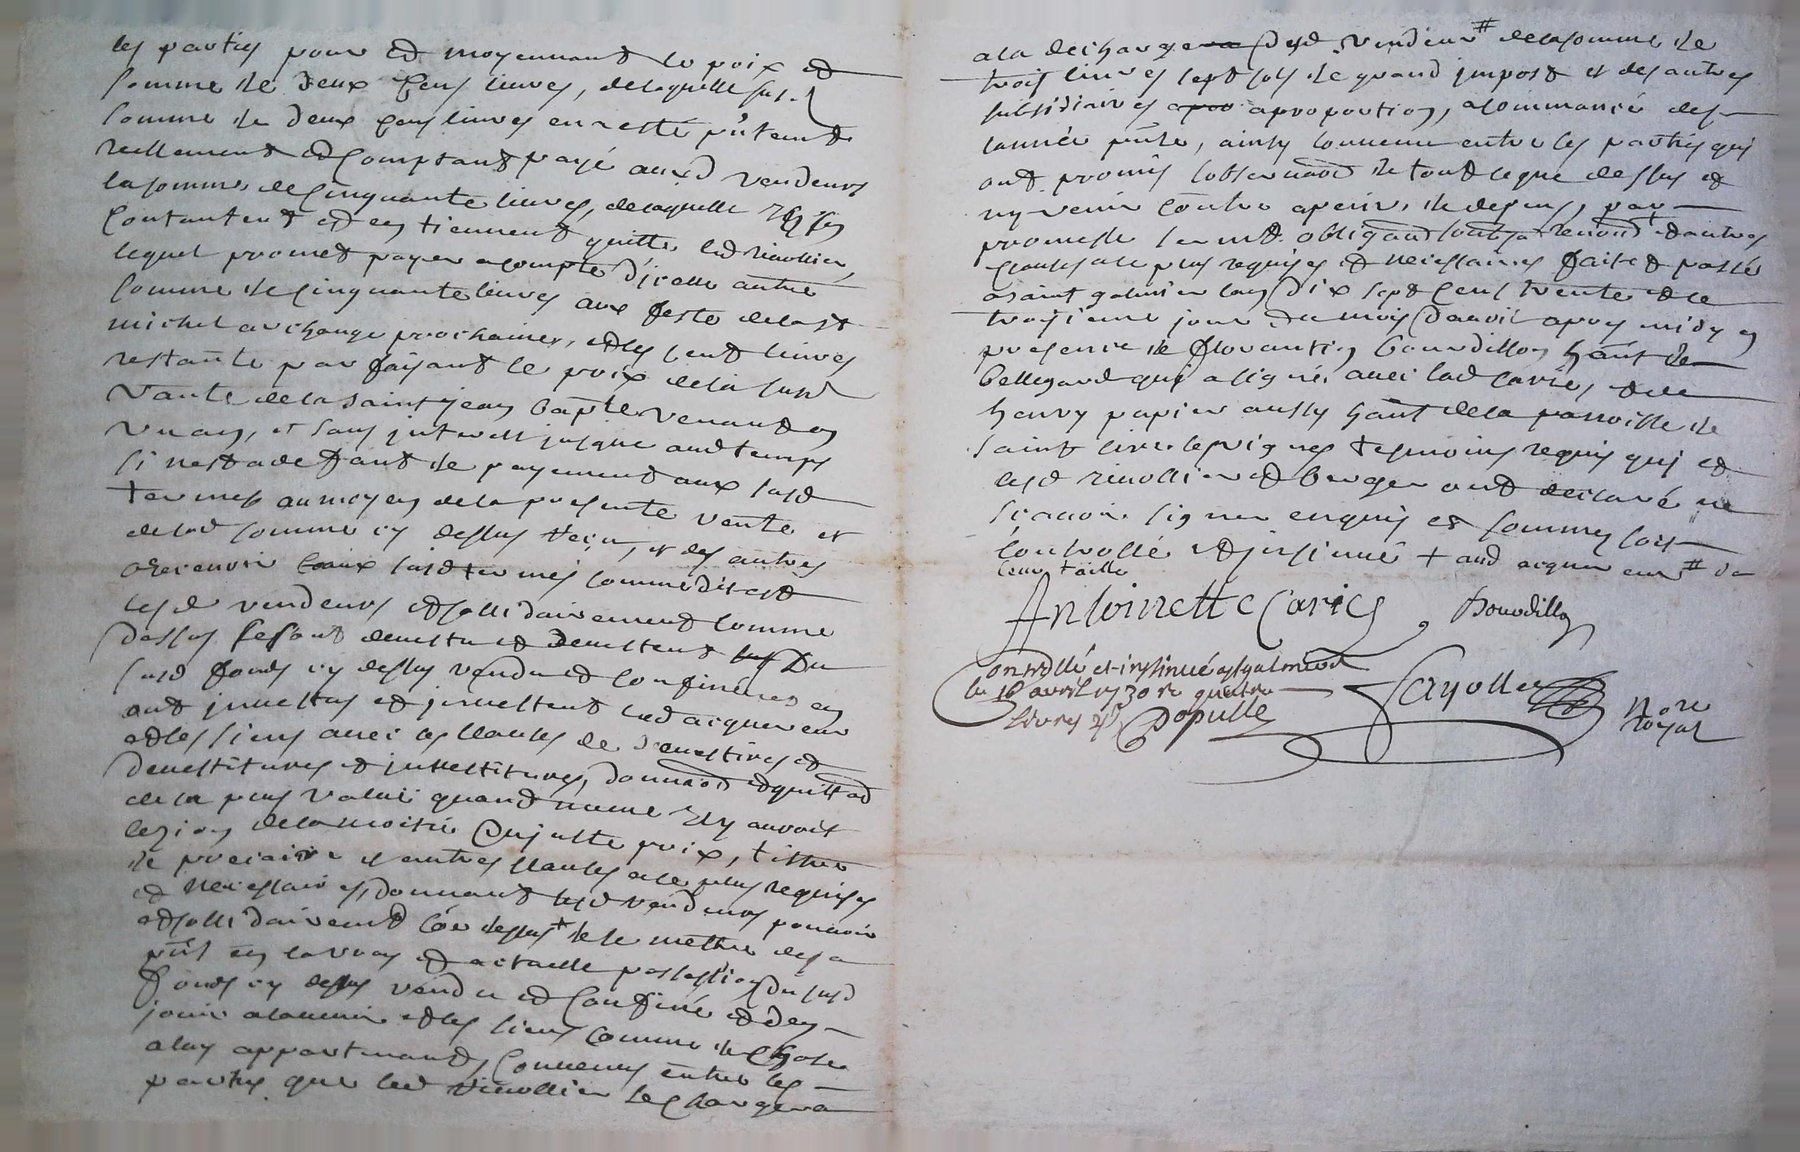 les parties pour et moyennant le prix et
somme de deux cens livres, de laquelle susd
somme de deux cens livres en a esté p̃ntement
reellement et comptant payé ausd vendeurs
la somme de cinquante livres, de laquelle ils s'en
contantent et en tiennent quitte led rivollier,
lequel promet payer a compte d'icelle autre
somme de cinquante livres aux feste de la st
michel archange prochaine, et les cent livres
restante par faisant le prix de la susd
vante de la saint jean baptẽ venant en
un an, et sans interest jusque aud temps
si n'est a deffaut de payement aux susd
termes au moyen de la presente vente et
de lad somme cy dessus receu, et des autres
a recevoir eaux susd termes comme dit est
lesd vendeurs et sollidairement comme
dessus se sont demetu et demettent du
susd fonds cy dessus vendu et confinéees en
ont investus et investent led acquereur
et les siens avec les clauses de devestires et
devestitures et investitures, donnant et quittant
de la plus value quand meme il y auroit
lezion de la moitié du juste prix, tiltre
de precaire et autres clauses a ce plus requises
et necessaires, donnant lesd vendeurs pouvoir
et sollidairement cõe dessus + de se mettre des a
p̃nt en la vray et actuelle possession du susd
fonds cy dessus vendu et confiné et d'en
jouir a l'avenir et les siens comme de chose
a luy appartenant, convenus entre les
parties que led rivollier se chargera
a la decharge desd vendeur # de la somme de
trois livres sept sols de grand impost et des autres
subsidiaires a proportion, a commancé des
l'année p̃nte, ainsy convenu entre les parties qui
ont promis l'observation de tout ce que dessus et
n'y venir contre a peine de depens, par
promesse serment obligations soubm renond et autres
clauses a ce plus requises et necessaires fait et passé
a saint galmier l'an dix sept cent trente et le
troisieme jour du mois d'avril apres midy en
presence de florantin bourdillon hãnt de
bellegarde qui a signé avec lad cariés, et de
henry papier aussy hãnt de la parroisse de
saint cire les vignes tesmoins requis qui et
lesd rivollier et berger ont declaré ne
scavoir signer enquis et sommes soit
controllé et insinué + aud acquereur # de
leur taille
Antoinette Cariés Bourdillon
Controllé et insinué a st galmier
le 16 avril 1730 re quatre
livres Dopulle
Fayolle nore
royal